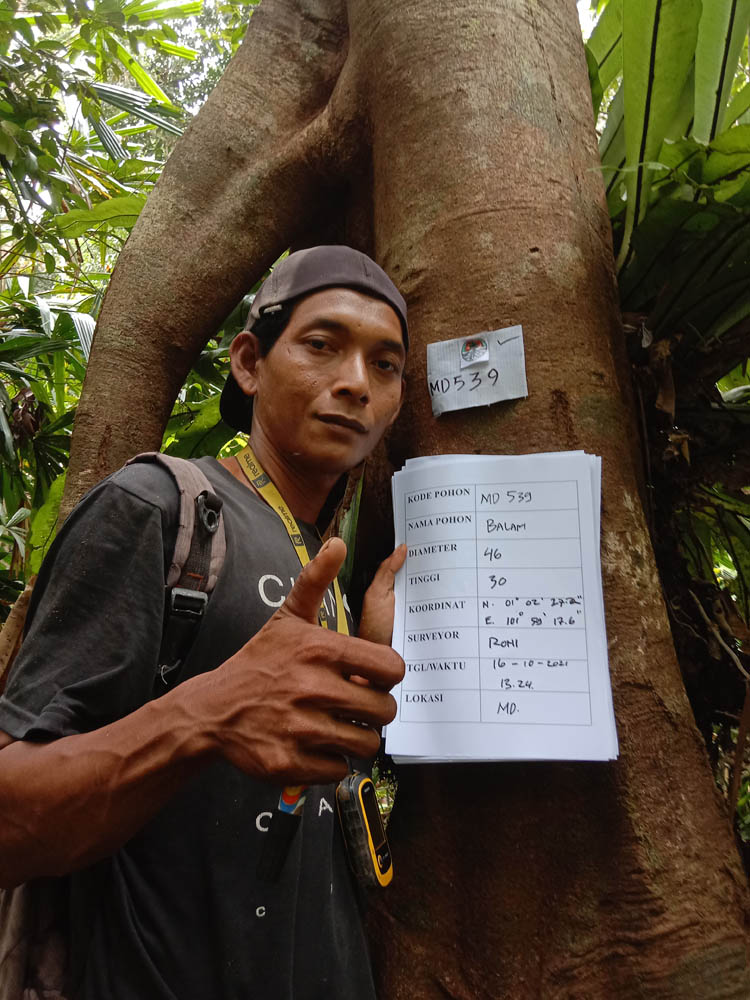 MD539
realme
KODE POHON MD 539
NAMA POHON BALAM
DIAMETER 46
TINGGI 30
KOORDINAT N. 01° 02' 27.2"
E. 101° 50' 17.6"
SURVEYOR RONI
TGL/WAKTU 16-10-2021
13.24.
LOKASI MD.